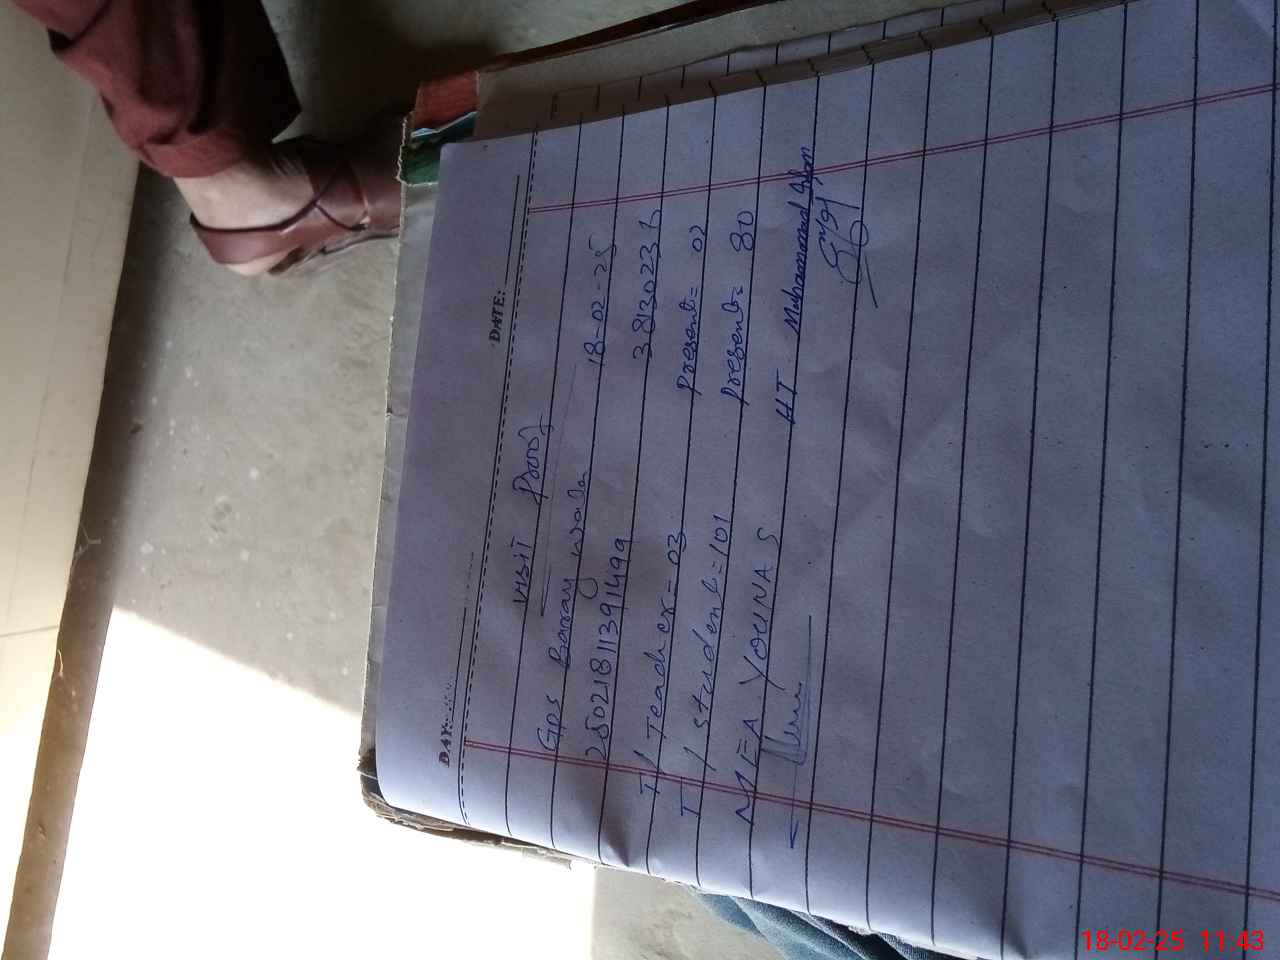 DAY: DATE:
VISIT Proof
GPS Baraywala 18-02-25
25021811391499 38130236
T/ Teacher = 03 Present = 02
T/ Student = 101 Present = 80
MEA YOUNAS HT Muhammad
18-02-25 11:43